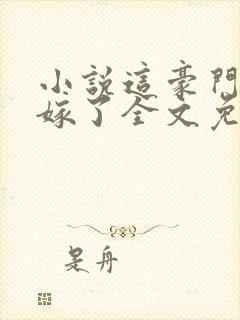 小說這豪門
嫁了全文免
是舟